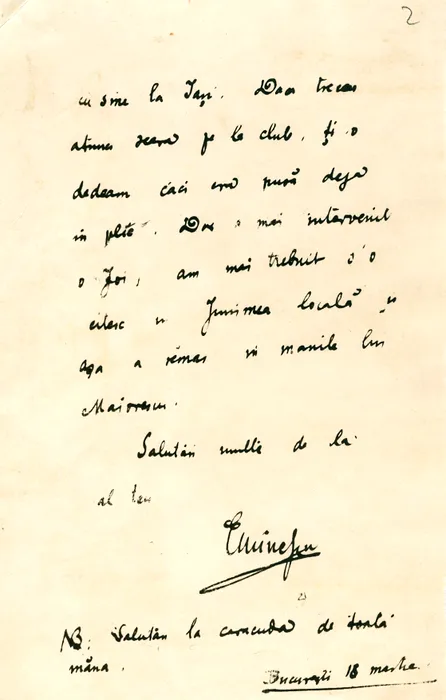 2
cu sine la Iași. Daca treceai
atunci seara pe la club, ți-o
dedeam căci era pusă deja
în plic. Dar a mai intervenit
o Joi, am mai trebuit s'o
citesc în Junimea locală și
așa a rămas în manile lui
Maiorescu.
Salutări multe de la
al tău
Eminescu
NB: Salutări la caracuda de toată
mâna.
București 18 martie